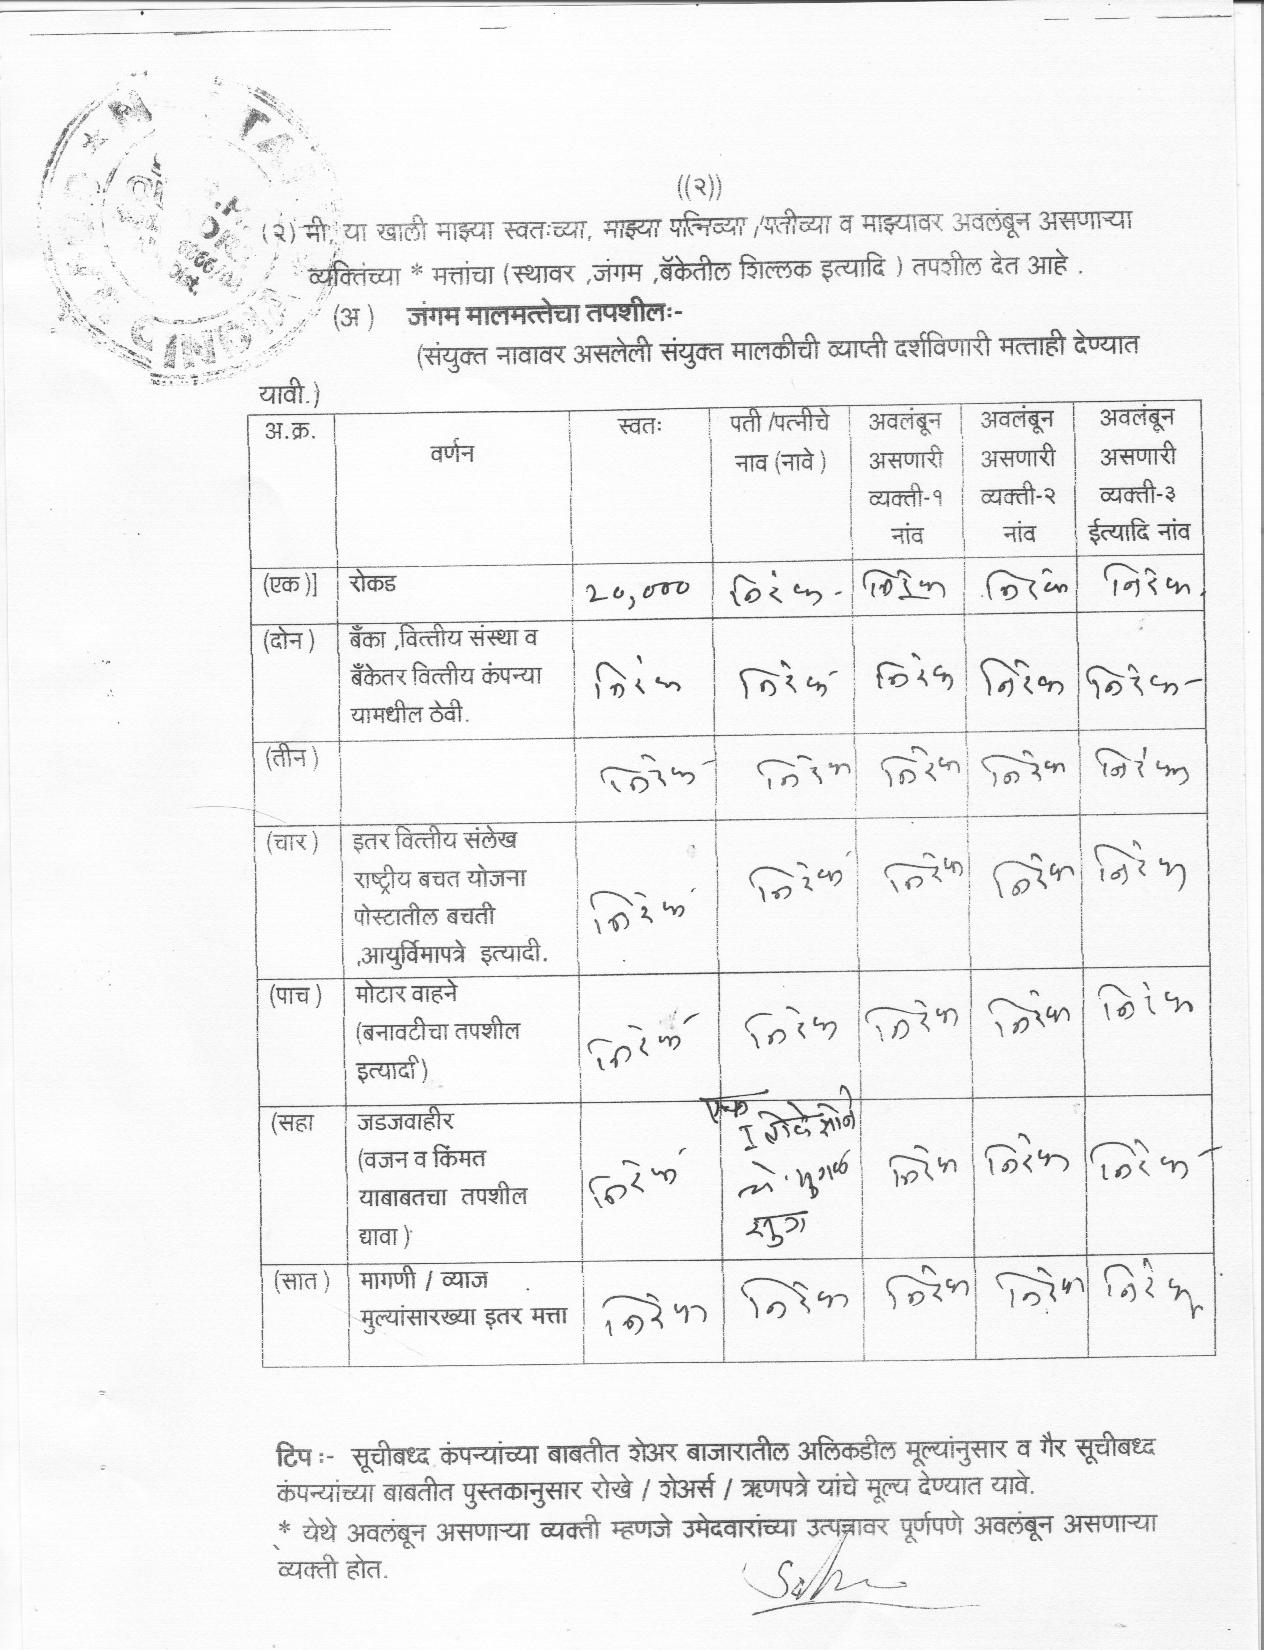 ((२))
(२) मी, या खाली माझ्या स्वतःच्या, माझ्या पत्निच्या /पतीच्या व माझ्यावर अवलंबून असणाऱ्या
व्यक्तिंच्या * मत्तांचा (स्थावर ,जंगम ,बॅकेतील शिल्लक इत्यादि ) तपशील देत आहे .
(अ ) जंगम मालमत्तेचा तपशीलः-
(संयुक्त नावावर असलेली संयुक्त मालकीची व्याप्ती दर्शविणारी मत्ताही देण्यात
यावी.)
अ.क्र. वर्णन स्वतः पती /पत्नीचे नाव (नावे ) अवलंबून असणारी व्यक्ती-१ नांव अवलंबून असणारी व्यक्ती-२ नांव अवलंबून असणारी व्यक्ती-३ ईत्यादि नांव
(एक)] रोकड 20,000 निरंक - निरंक निरंक निरंक
(दोन ) बँका ,वित्तीय संस्था व
बँकेतर वित्तीय कंपन्या
यामधील ठेवी. निरंक निरंक निरंक निरंक निरंक
(तीन ) निरंक निरंक निरंक निरंक निरंक
(चार ) इतर वित्तीय संलेख
राष्ट्रीय बचत योजना
पोस्टातील बचती
,आयुर्विमापत्रे इत्यादी. निरंक निरंक निरंक निरंक निरंक
(पाच ) मोटार वाहने
(बनावटीचा तपशील
इत्यादी) निरंक निरंक निरंक निरंक निरंक
(सहा जडजवाहीर
(वजन व किंमत
याबाबतचा तपशील
द्यावा ) निरंक एक सोने निरंक निरंक निरंक
(सात ) मागणी / व्याज
मुल्यांसारख्या इतर मत्ता निरंक निरंक निरंक निरंक निरंक
टिप :- सूचीबध्द कंपन्यांच्या बाबतीत शेअर बाजारातील अलिकडील मूल्यांनुसार व गैर सूचीबध्द
कंपन्यांच्या बाबतीत पुस्तकानुसार रोखे / शेअर्स / ऋणपत्रे यांचे मूल्य देण्यात यावे.
* येथे अवलंबून असणाऱ्या व्यक्ती म्हणजे उमेदवारांच्या उत्पन्नावर पूर्णपणे अवलंबून असणाऱ्या
व्यक्ती होत.